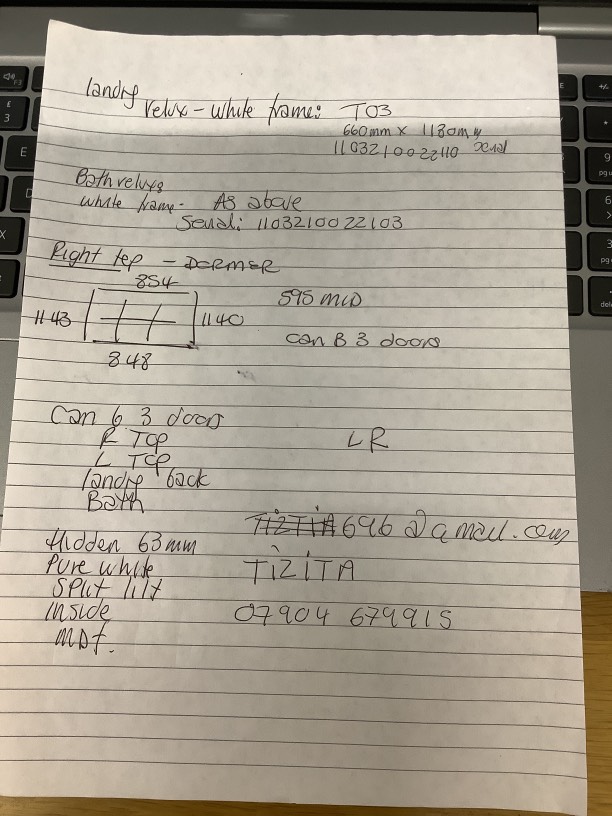 landry
velux - white frame: T03
660mm x 1180mm
110321002110 serial
Bath velux
white frame - AS above
Serial: 110321002103
Right top - DORMER
854
1143
1140
848
595 MID
can B 3 doors
Can b 3 doors
R TOP
L TOP
landry back
Bath
LR
TIZTIA696@gmail.com
Hidden 63mm
Pure white
Split tilt
inside
MDf.
TiZiTA
07904 679915